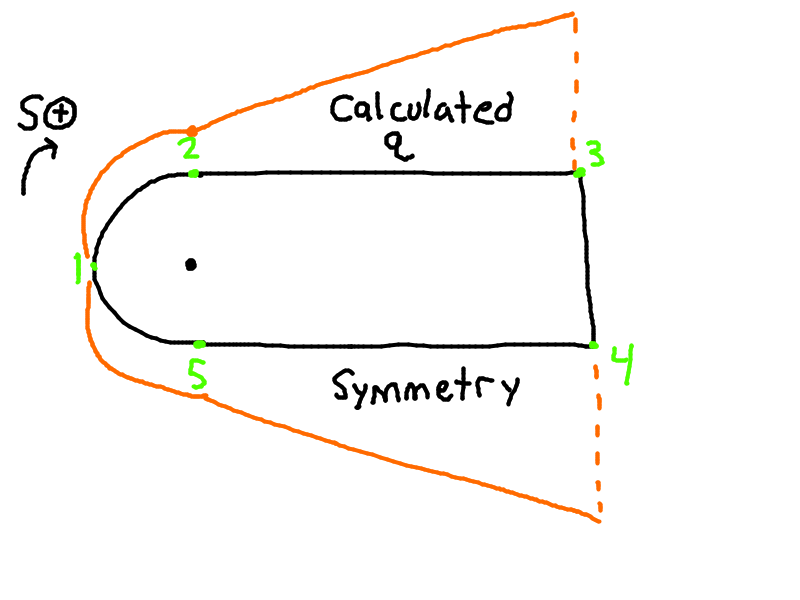 S⊕
Calculated
q
2
3
1
5
4
Symmetry